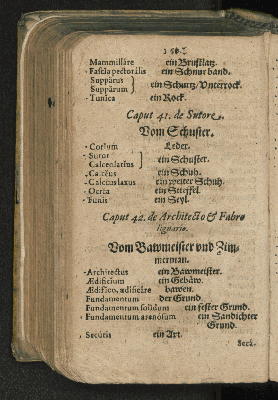 Mammillare ein Brustlatz.
Fascia pectoralis ein Schnur band.
Suppărus
Suppărum } ein Schurtz/Unterrock.
Tunica ein Rock.
Caput 41. de Sutore.
Vom Schuster.
Corium Leder.
Sutor
Calcearius } ein Schuster.
Calcĕus ein Schuh.
Calceus laxus ein weiter Schuh.
Ocrea ein Stieffel.
Funis ein Seyl.
Caput 42. de Architecto & Fabro
lignario.
Vom Bawmeister vnd Zim-
merman.
Architectus ein Bawmeister.
Ædificium ein Gebäw.
Ædifico, ædificāre bawen.
Fundamentum der Grund.
Fundamentum solidum ein fester Grund.
Fundamentum arenosum ein Sandichter
Grund.
Secūris ein Axt.